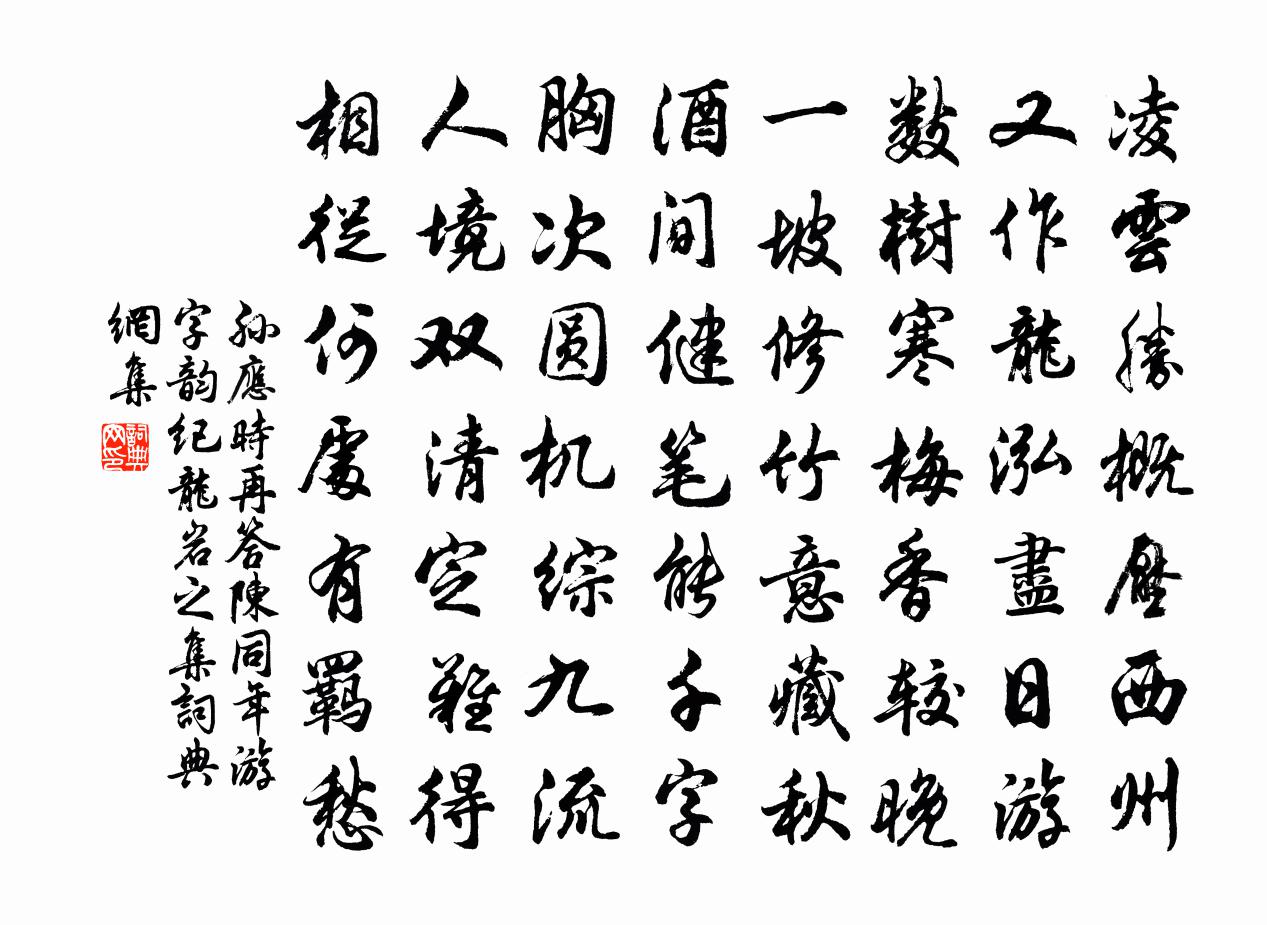 凌雲勝概壓西州
又作龍泓盡日游
數樹寒梅香较晚
一坡修竹意藏秋
酒间健笔能千字
胸次圆机综九流
人境双清定難得
相從何處有羁愁
孙應時再答陳同年游
字韵纪龍岩之集詞典
網集